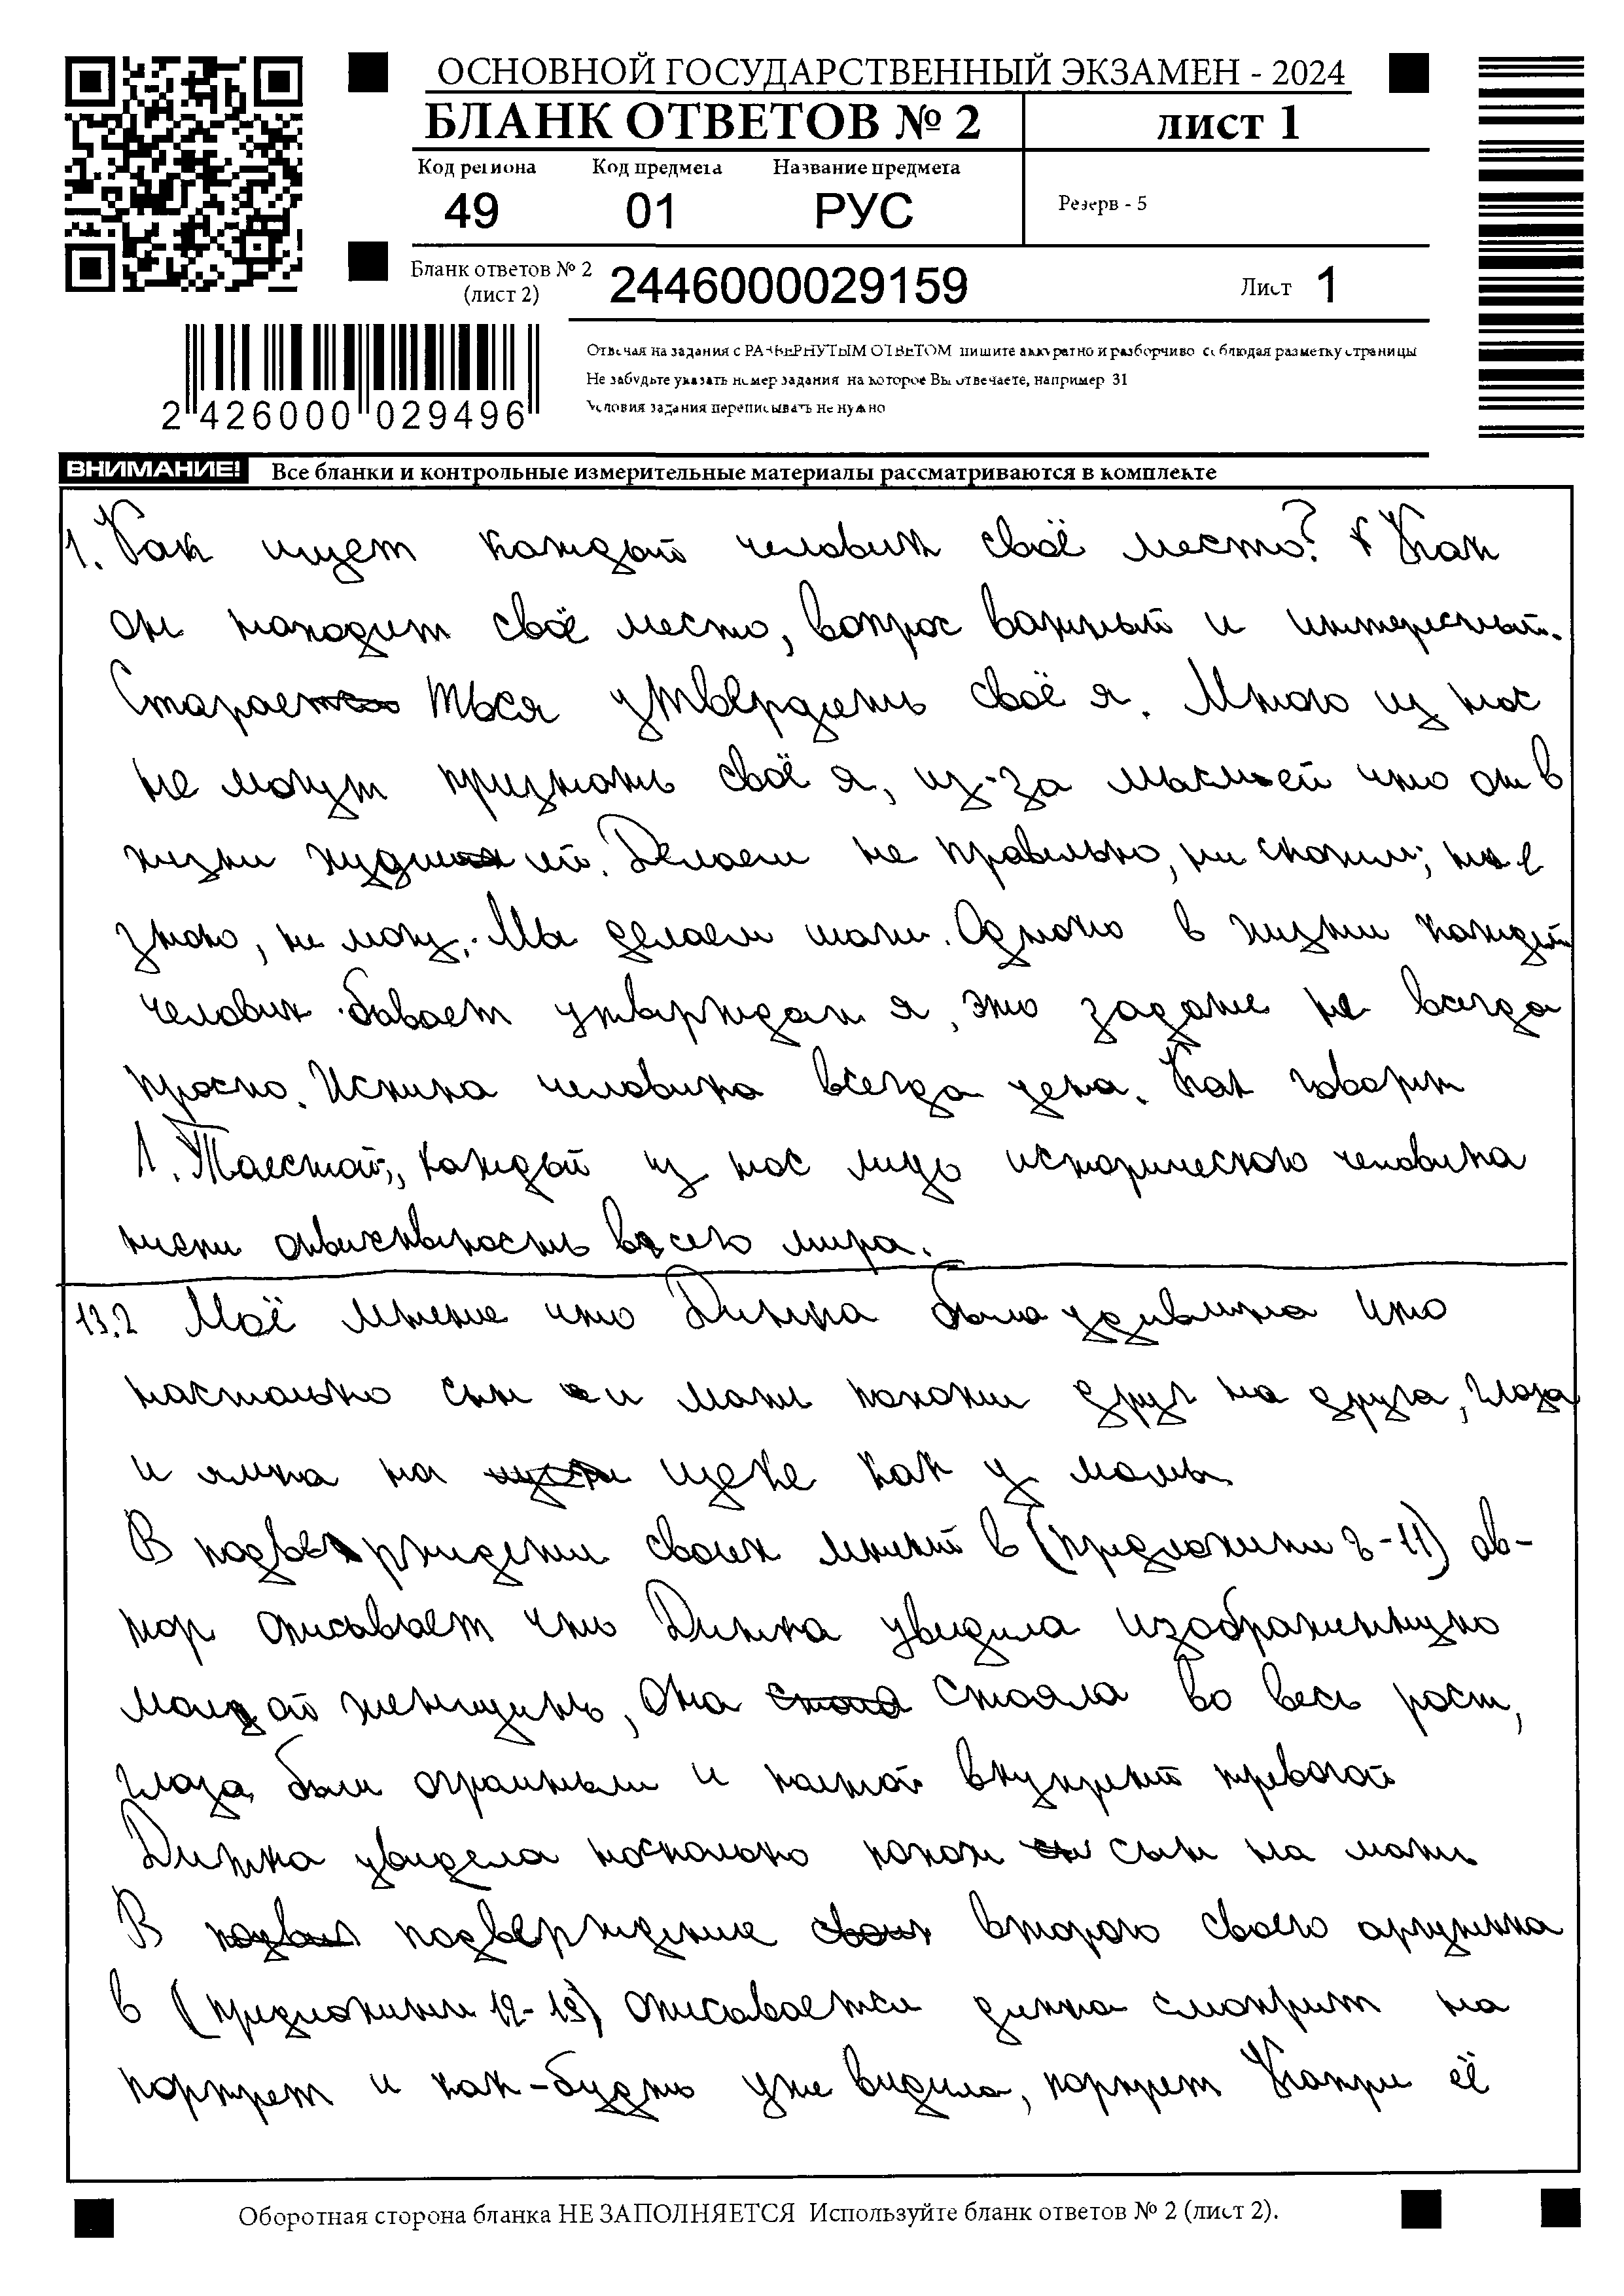 ОСНОВНОЙ ГОСУДАРСТВЕННЫЙ ЭКЗАМЕН - 2024
БЛАНК ОТВЕТОВ № 2
лист 1
Код региона Код предмета Название предмета
49 01 РУС
Резерв - 5
Бланк ответов № 2
(лист 2)
2446000029159
Лист 1
Отвечая на задания с РАЗВЕРНУТЫМ ОТВЕТОМ пишите аккуратно и разборчиво соблюдая разметку страницы
Не забудьте указать номер задания на которое Вы отвечаете, например 31
Условия задания переписывать не нужно
2 426000 029496
ВНИМАНИЕ! Все бланки и контрольные измерительные материалы рассматриваются в комплекте
1. Как ищет каждый человик своё место? Как
он находит своё место, вопрос важный и интересный.
Стараеться утвердить своё я. Много из нас
не могут признать своё я, из-за мыслей что он в
жизни худший. Делаем не правильно, не
знаю, не могу. Мы делаем шаги. Однако в жизни
человик бывает я, это задание не всегда
просто. Истина человика всегда цена. Как говорит
Л. Талстой, каждый из нас лицо исторического человика
нисти всего мира.
13.2 Моё мнение что Димка была удивлина что
настолько сын и мать похожи друг на друга, глаза
и ямка на щеке как у мамы
В своих мнений в (предложении 8-11) ав-
тор описывает что Димка увидила
молодой женщины, она стояла во весь рост,
глаза были огромными и тревогой
Димка увидела насколько похож сын на мать
В подверждение второго своего
в (предложении 12-13) описывается димка смотрит на
портрет и как-будто уже видила, портрет её
Оборотная сторона бланка НЕ ЗАПОЛНЯЕТСЯ Используйте бланк ответов № 2 (лист 2).